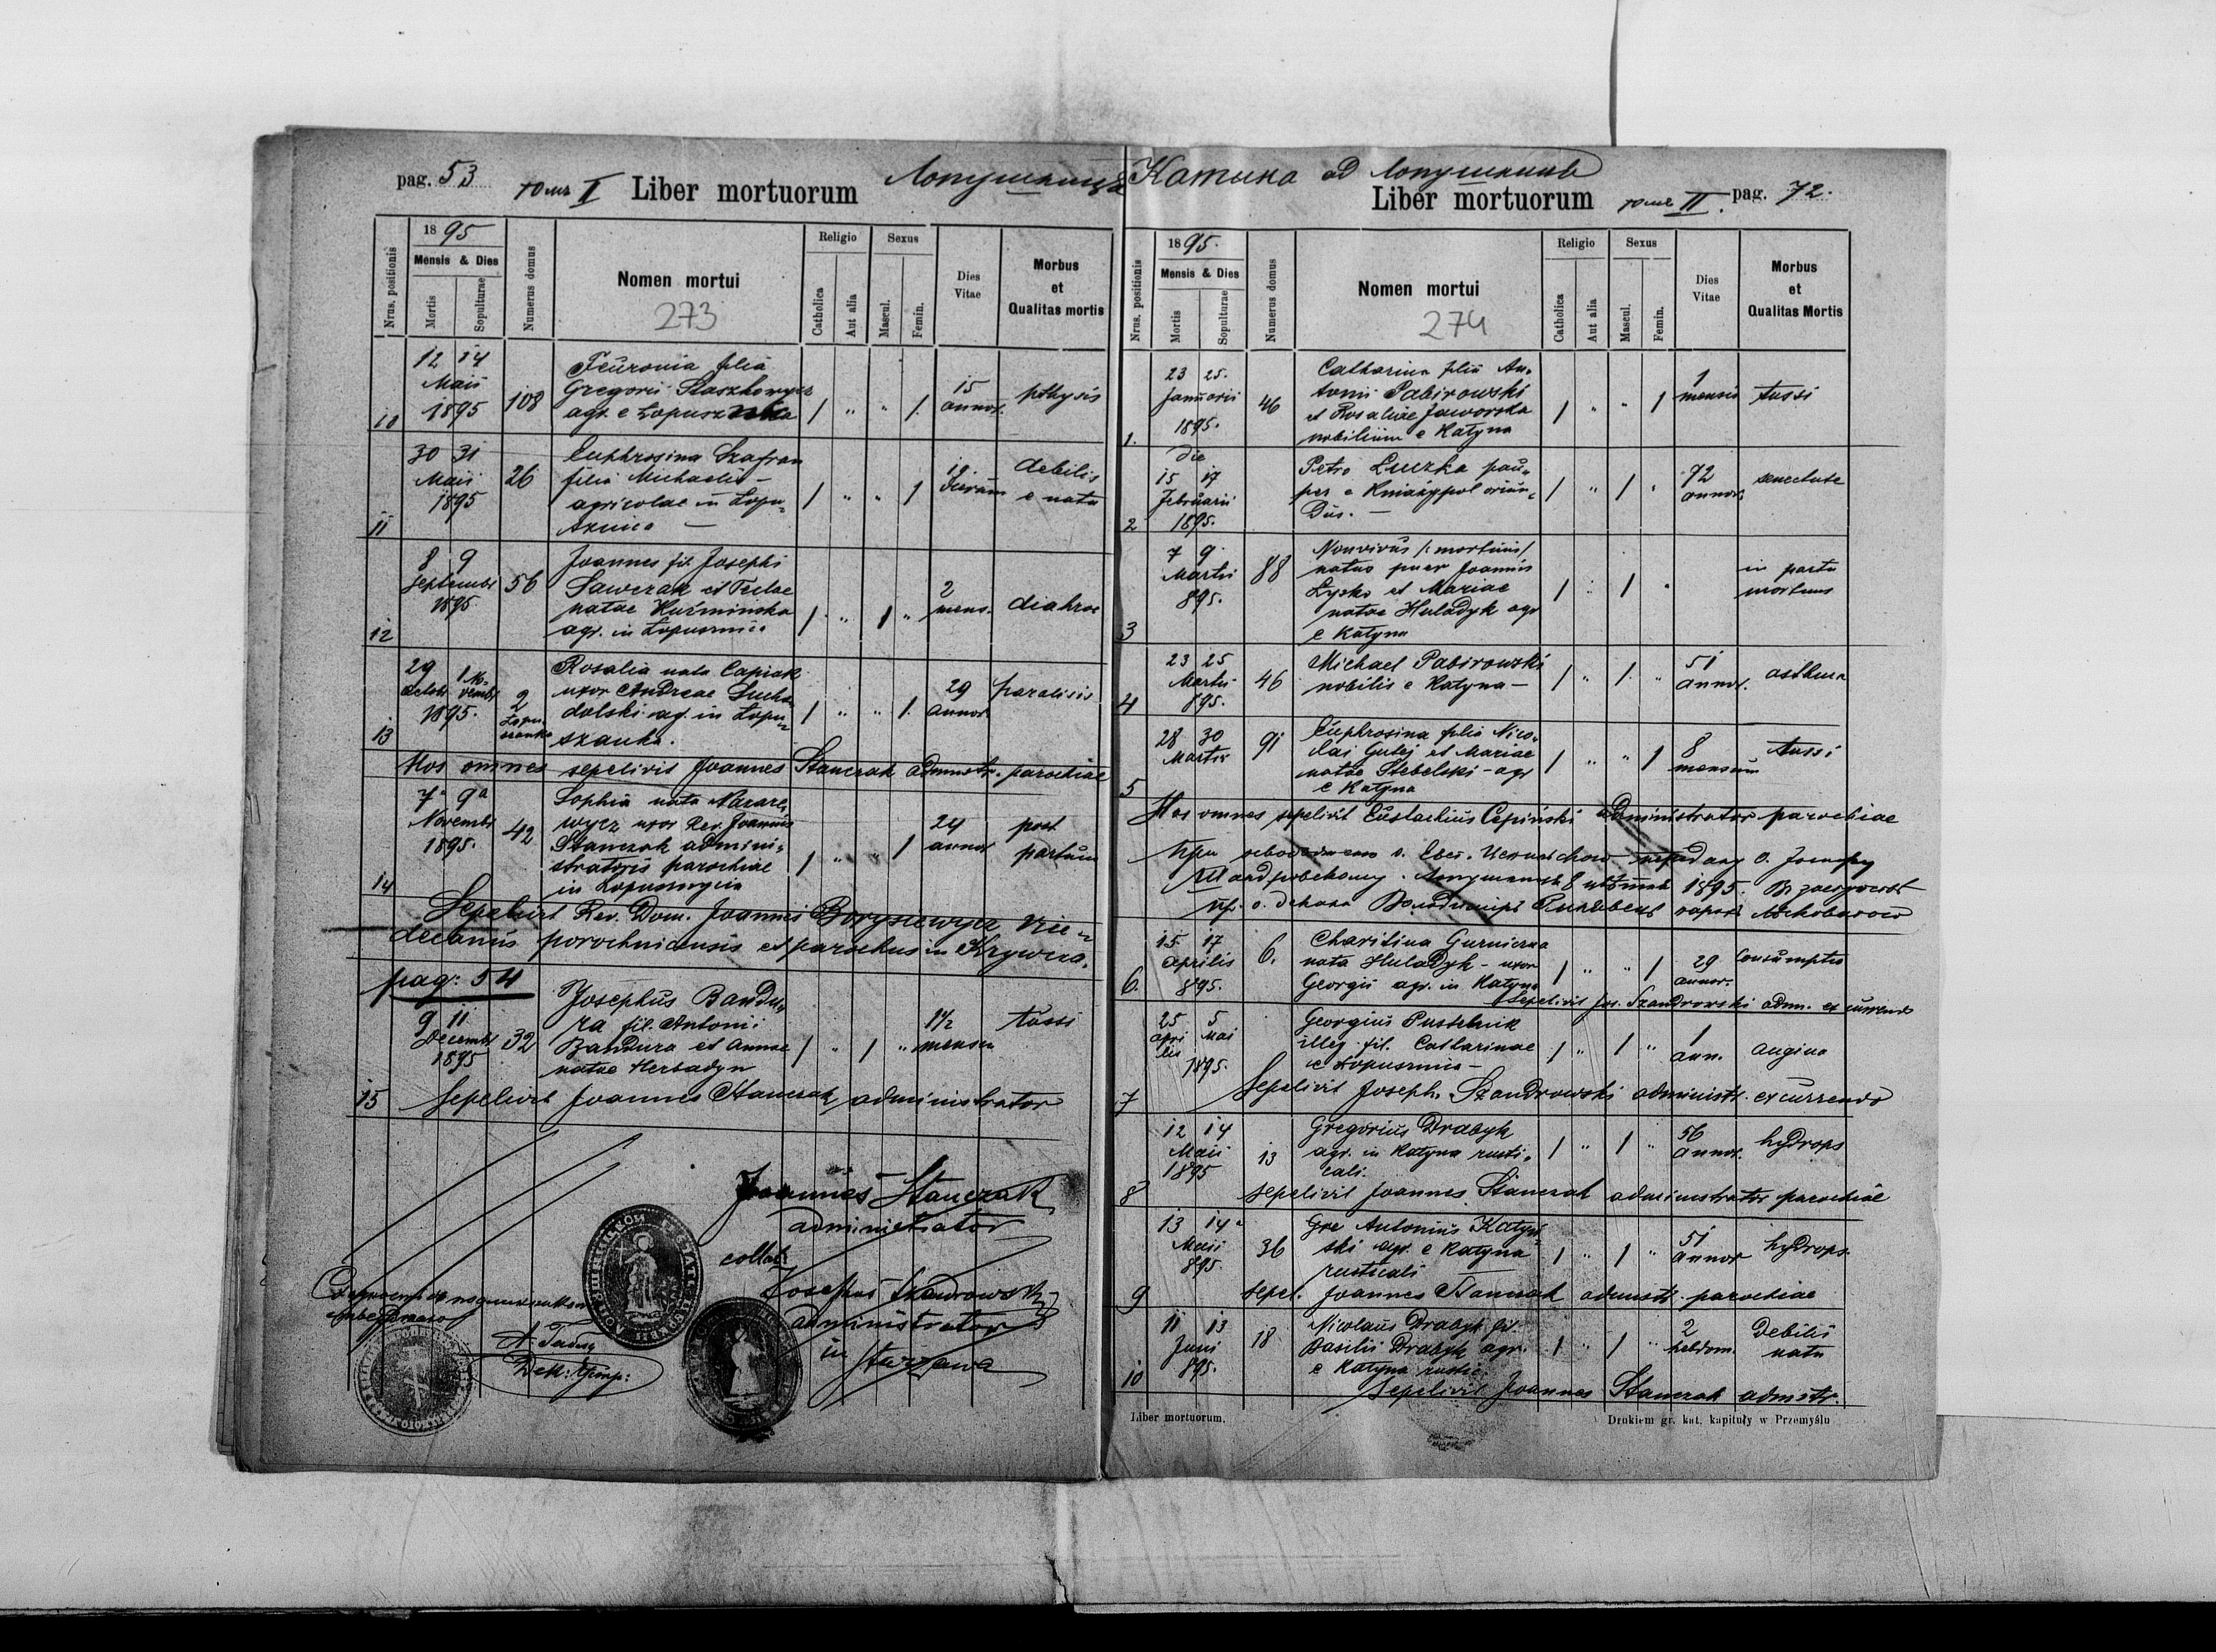 pag. 53
томъ II Liber mortuorum Лопушница
Nrus. positionis
1895
Mensis & Dies
Mortis
Sepulturae
Numerus domus
Nomen mortui
273
Religio
Catholica
Aut alia
Sexus
Mascul.
Femin.
Dies Vitae
Morbus
et
Qualitas mortis
12 14
Maii
1895
10
108
Feuronia filia
Gregorii Staszkowycz
agr. e Lopuszanka
1 " " 1.
15
annor.
pthysis
30 31
Maii
1895
11
26
Euphrosina Szafran
filia Michaelis -
agricolae in Lopu„
sznica -
1 " " 1
10
dierum
debilis
e natu
8 9
Septembr
1895
12
56
Joannes fil. Josephi
Sawczak et Teclae
natae Kuźminska
agr. in Lopusznica
1. " 1 "
2
mens.
diahroe
29 1 No„
Octobr vembr
1895.
13
2
Lopu„
szanka
Rosalia nata Capiak
uxor Andreae Sucho„
dolski ag. in Lopu„
szanka.
1 " " 1.
29
annor
paralisis
Hos omnes sepelivit Joannes Stanczak admnstr. parochiae
7 9
Novembr
1895.
14
42
Sophia nata Nazare„
wycz uxor Rev. Joannis
Stanczak admini„
stratoris parochiae
in Lopusznycia
1 " " 1
24
annor
post
partum
Sepelivit Rev. Dom. Joannis Borysiewycz Vice„
decanus porochnicensis et parochus in Krywcza.
pag: 54
9 11
Decembr
1895
15
32
Josephus Bandu„
ra fil. Antonii
Bandura et Annae
natae Herbadyn
1 " 1 "
1½
mensu
tussi
Sepelivit Joannes Stanczak administrator
Joannes Stanczak
administrator
collat.
Josephus Szandrowski
administrator
in Starzawa
Катина ad Лопушница
Liber mortuorum томъ II. pag. 72.
Nrus. positionis
1895.
Mensis & Dies
Mortis
Sepulturae
Numerus domus
Nomen mortui
274
Religio
Catholica
Aut alia
Sexus
Mascul.
Femin.
Dies Vitae
Morbus
et
Qualitas Mortis
23 25.
Januarii
1895.
1.
46
Catharina filia An„
tonii Pabirowski
et Rosaliae Jaworska
nobilium e Katyna
1 " " 1
1
mensis
tussi
die
15 17
Februarii
1895.
2
Petro Luczka pau„
per e Kniażypol oriun„
dus. -
1 " 1 "
72
annor.
senectute
7 9
Martii
895.
3
88
Nonvivus /: mortuus/
natus puer Joannis
Lysko et Mariae
natae Huladyk agr
e Katyna
1 " 1 "
in partu
mortuus
23 25
Martii
895.
4
46
Michael Pabirowski
nobilis e Katyna -
1 " 1. "
51
annor.
asthma
28 30
Martii
5
91
Euphrosina filia Nico„
lai Gutej et Mariae
natae Stebelski - agr
e Katyna
1 " " 1
8
mensium
tussi
Hos omnes sepelivit Eustachius Cepiński administrator parochiae
1895.
15 17
Aprilis
895.
6.
6.
Charitina Gurniczna
nata Huladyk - uxor
Georgii agr. in Katyna
1 " " 1
29
annor.
Consumptio
Sepelivit Jos. Szandrowski adm. excurrendo
25 5
Apri Mai
lis
1895.
7
Georgius Pustelnik
illeg. fil. Catharinae
e Lopusznica -
1 " 1 "
1
ann.
angina
Sepelivit Joseph. Szandrowski administr. excurrendo
12 14
Maii
1895
8
13
Gregorius Drabyk
agr. in Katyna rusti„
cali.
1 " 1 "
56
annor.
hydrops
sepelivit Joannes Stanczak administrator parochiae
13 14
Maii
895
9
36
Gre Antonius Katyń„
ski agr. e Katyna
rusticali
1 " 1 "
51
annor
hydrops.
sepel. Joannes Stanczak admstr. parochiae
11 13
Juni
895.
10
18
Nicolaus Drabyk fil.
Basilii Drabyk agr.
e Katyna rustic
1 " 1 "
2
hebdom.
debilis
natu
Sepelivit Joannes Stanczak admstr.
Liber mortuorum.
Drukiem gr. kat. kapituły w Przemyślu